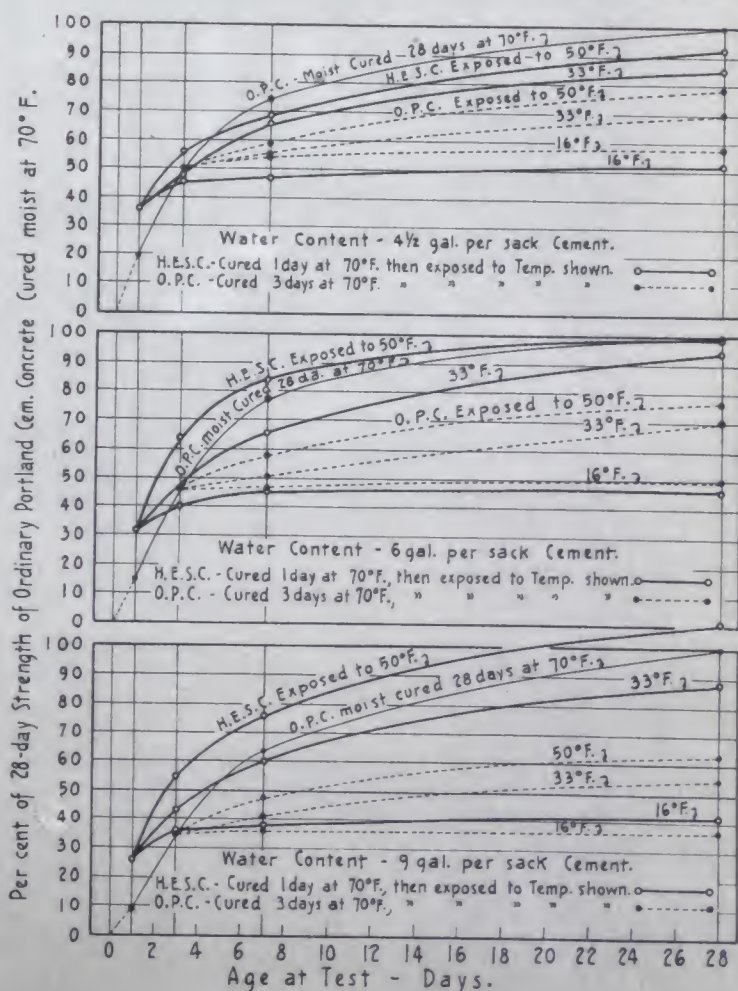 Per cent of 28-day Strength of Ordinary Portland Cem. Concrete Cured moist at 70°F.
100
90
80
70
60
50
40
30
20
10
0
O.P.C. - Moist Cured - 28 days at 70°F.
H.E.S.C. Exposed to 50°F.
33°F.
O.P.C. Exposed to 50°F.
33°F.
16°F.
16°F.
Water Content - 4½ gal. per sack Cement.
H.E.S.C. - Cured 1 day at 70°F. then exposed to Temp. shown.
O.P.C. - Cured 3 days at 70°F. " " " " "
100
90
80
70
60
50
40
30
20
10
0
H.E.S.C. Exposed to 50°F.
O.P.C. moist Cured 28 da. at 70°F.
33°F.
O.P.C. Exposed to 50°F.
33°F.
16°F.
Water Content - 6 gal. per sack Cement.
H.E.S.C. - Cured 1 day at 70°F., then exposed to Temp. shown.
O.P.C. - Cured 3 days at 70°F., " " " " "
100
90
80
70
60
50
40
30
20
10
0
H.E.S.C. Exposed to 50°F.
O.P.C. moist cured 28 days at 70°F.
33°F.
50°F.
33°F.
16°F.
16°F.
Water Content - 9 gal. per sack Cement.
H.E.S.C. - Cured 1 day at 70°F., then exposed to Temp. shown.
O.P.C. - Cured 3 days at 70°F., " " " " "
0 2 4 6 8 10 12 14 16 18 20 22 24 26 28
Age at Test - Days.